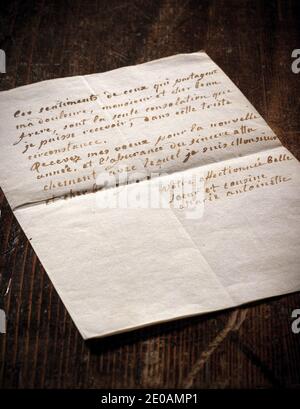 Les sentiments de ceux qui partagent
ma douleure, monsieur et cher bon
frere, sont la seule consolation que
je puisse recevoir, dans cette triste
circonstance.
Recevez mes voeux pour la nouvelle
année, et l'assurance du sincere atta-
chement avec lequel je suis Monsieur
et cher
votre affectionnée Belle
soeur et cousine
marie antoinette
alamy
Image ID: 2E0AMP1
www.alamy.com